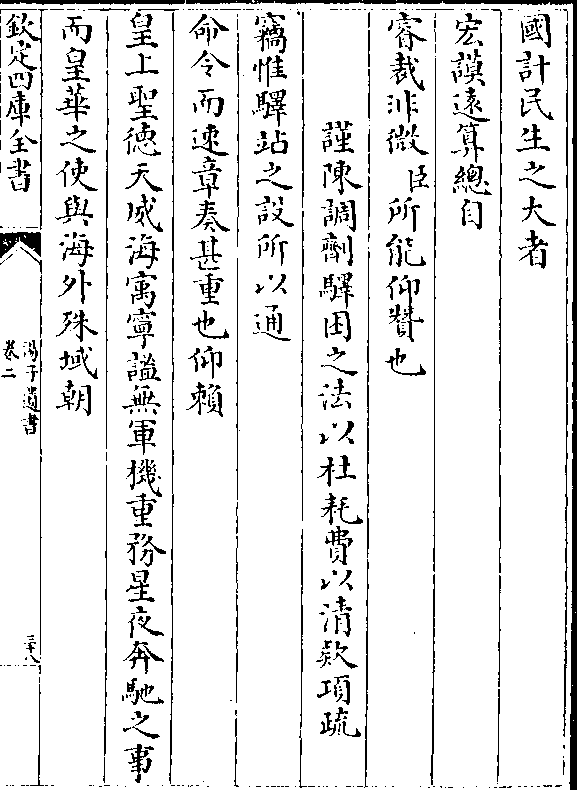 國計民生之大者
宏謨遠算總自
睿裁非微臣所能仰贊也
謹陳調劑驛困之法以杜耗費以清欵項疏
竊惟驛站之設所以通
命令而速章奏甚重也仰賴
皇上聖德天威海㝢寧謐無軍機重務星夜奔馳之事
而皇華之使與海外殊域朝
欽定四庫全書
湯子遺書
卷二
三十八